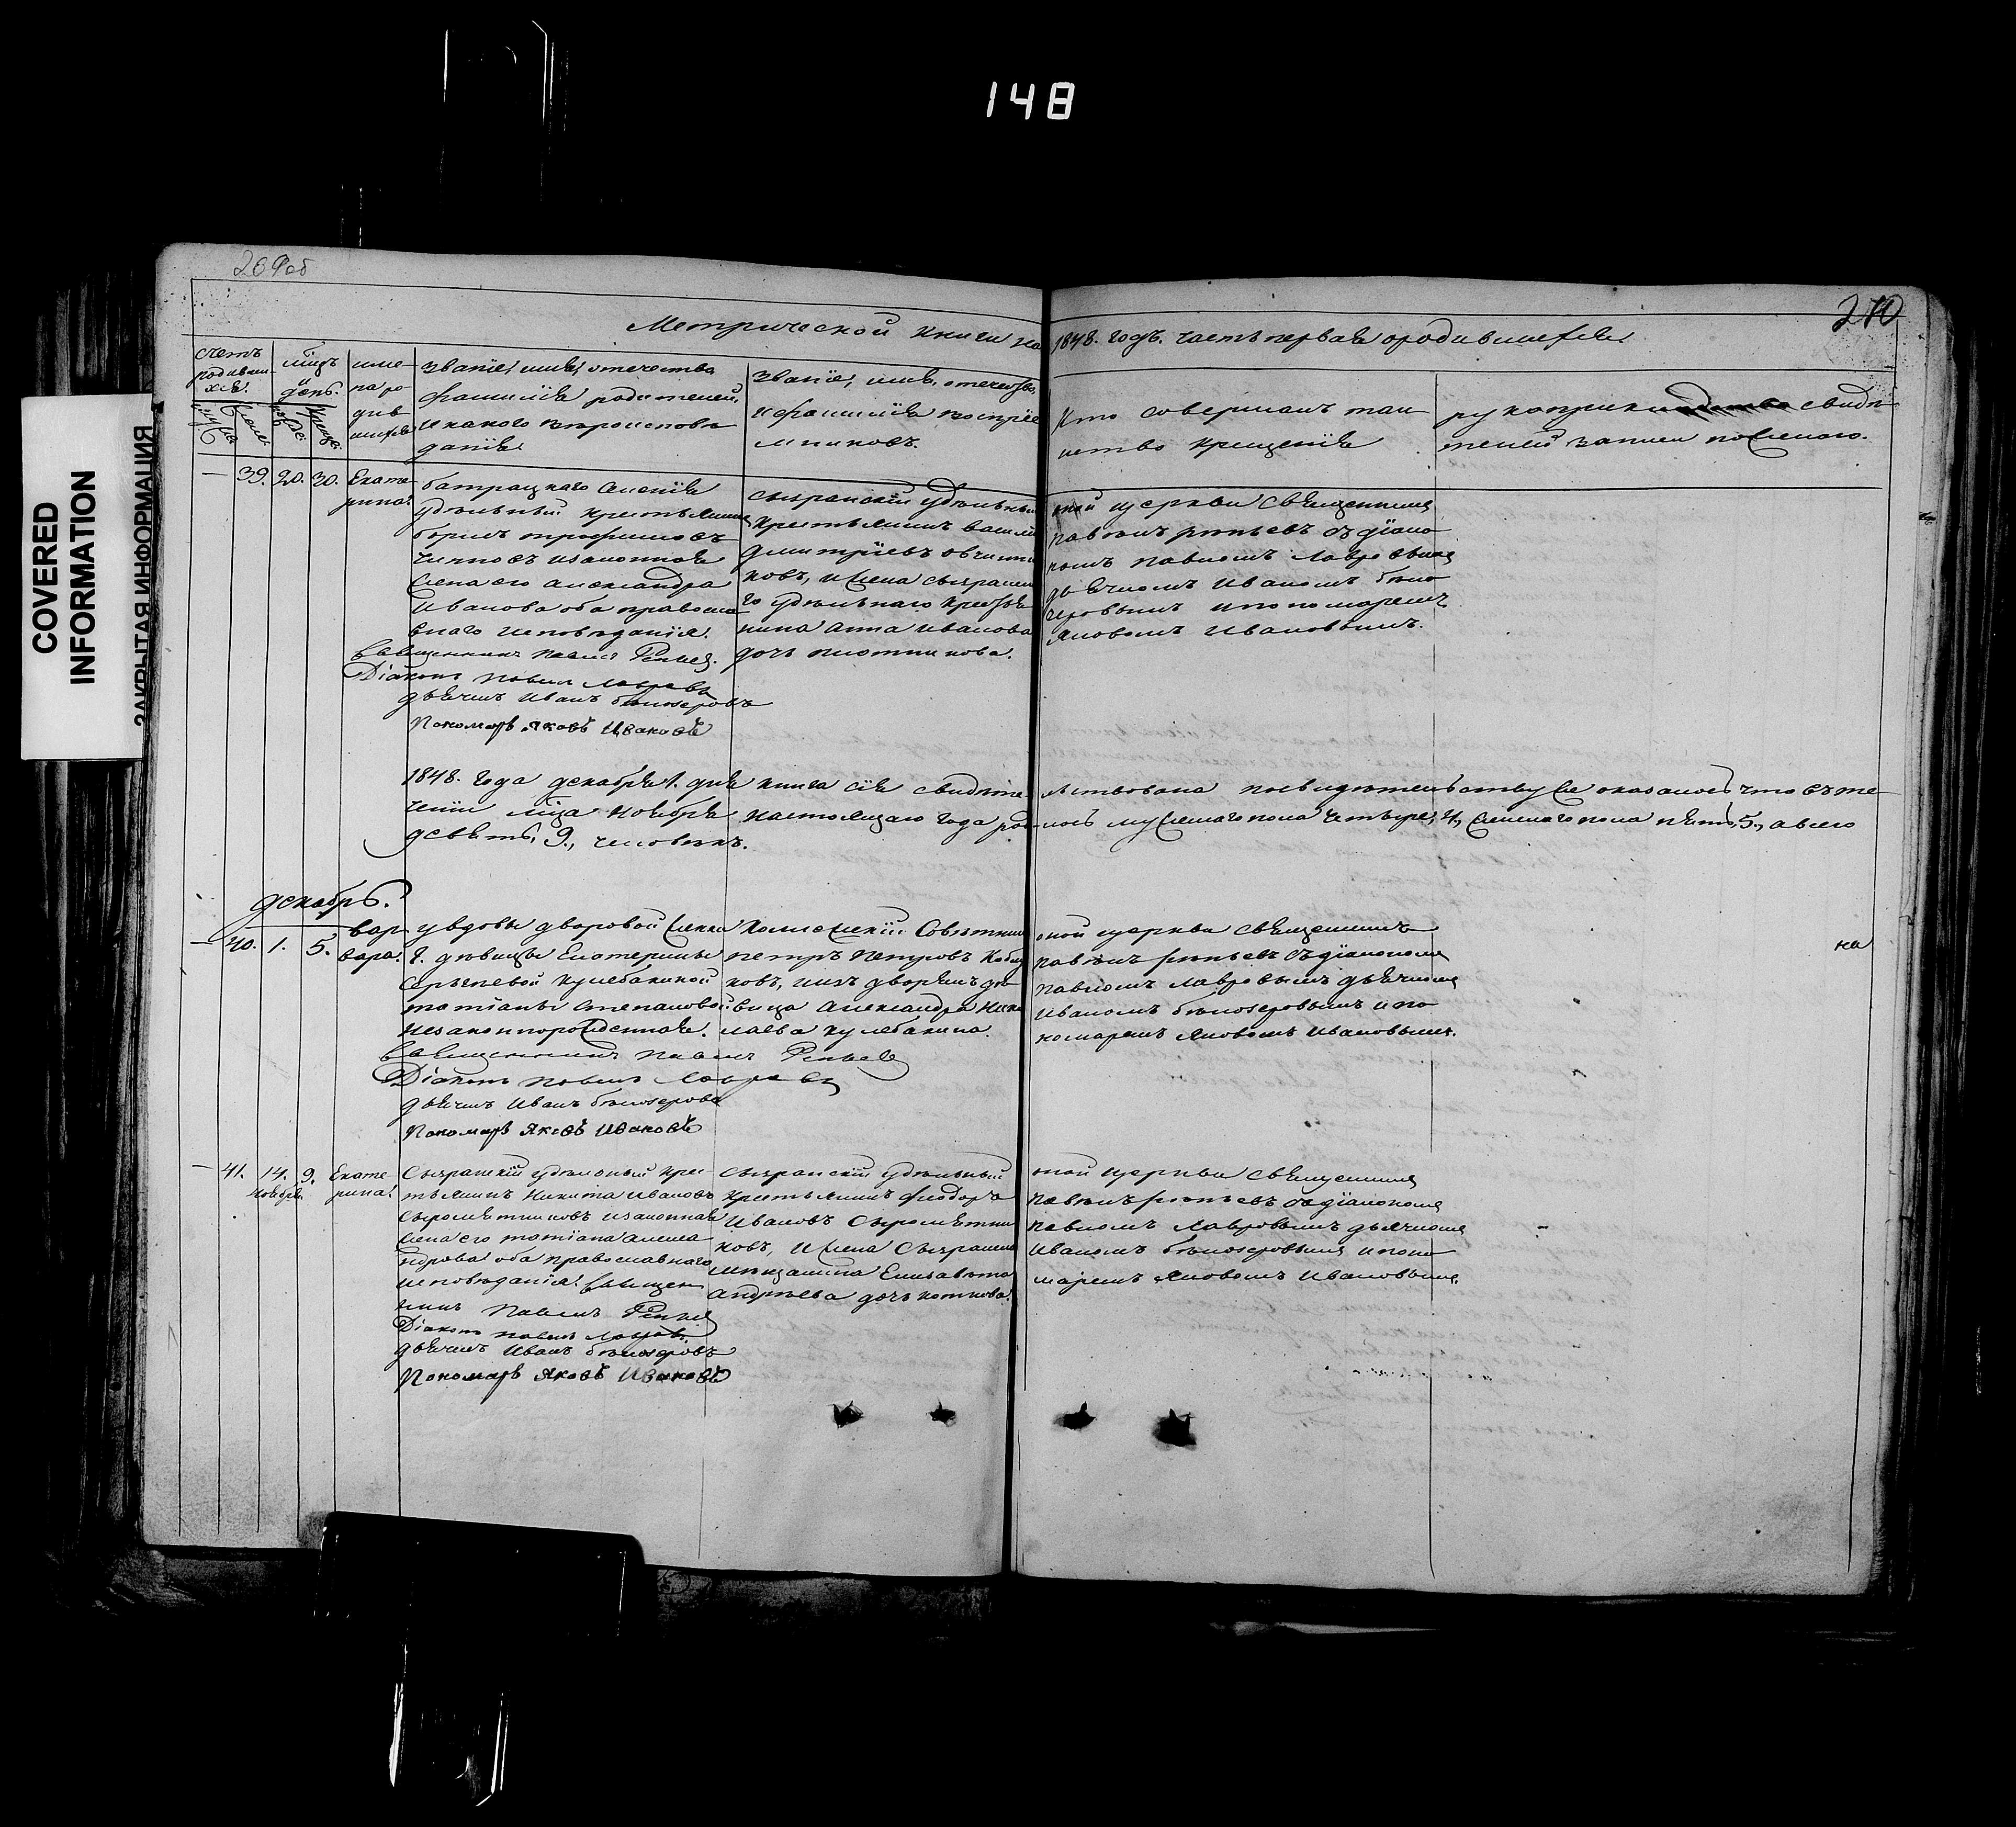 148
COVERED
INFORMATION
ЗАКРЫТАЯ ИНФОРМАЦИЯ
269об
270
Метрической книги на 1848. годъ. часть первая ородившихся
счетъ
родивши
хся.
мцъ
и
день.
име
на ро
див
шихся
званіе, имя, отечество
фамилія родителей,
и какого вѣроисповѣ
данія.
званіе, имя, отечество,
и фамилія воспріе
мниковъ.
Кто совершалъ таи
нство крещенія
рукоприкладство свидѣ
телей записи по желанію.
39. 20. 30. Екате
рина.
батрацкаго имѣнія
удѣльный крестьянинъ
его Александра
Иванова оба правосла
внаго исповѣданія.
Священникъ Павелъ
Діаконъ Павелъ Лавровъ
дьячекъ Иванъ бѣлозеровъ
Пономарь Яковъ Ивановъ
сызранскій удѣльный
крестьянинъ васили
дмитріевъ овчинни
ковъ, и жена сызранска
го удѣльнаго крестья
нина Анна Иванова
дочь плотникова.
оной церкви священникъ
павелъ съ діако
номъ павломъ лавровымъ
дьячкомъ иваномъ бѣло
зеровымъ и пономаремъ
яковомъ Ивановымъ.
1848. года декабря 1. дня книга сія свидѣте льствована по свидѣтельству же оказалось что въ те
ченіи мца ноября настоящаго года роди лось мужескаго пола четыре, 4, женскаго пола пять, 5, а всего
девять, 9, человекъ.
декабрь.
40. 1. 5. вар
вара.
у вдовы дворовой женки
Г. дѣвицы Екатерины
Сергѣевой кулебакиной
татіаны степановой
незаконнорожденная.
Священникъ Павелъ
Діаконъ Павелъ Лавровъ
дьячекъ Иванъ бѣлозеровъ
Пономарь Яковъ Ивановъ
Колежскій Совѣтникъ
петръ петровъ
ковъ, и изъ дворянъ дѣ
вица Александра Нико
лаева кулебакина.
оной церкви священникъ
павелъ съ діакономъ
павломъ лавровымъ дьячкомъ
иваномъ бѣлозеровымъ и по
номаремъ яковомъ ивановымъ.
на
41. 14. 9. Екате
ноября. рина.
Сызранскій удѣльный крес
тьянинъ никита ивановъ
сыромятниковъ и законная
жена его татіана алекса
ндрова оба православнаго
исповѣданія. Священ
никъ Павелъ
Діаконъ Павелъ Лавровъ
дьячекъ Иванъ бѣлозеровъ
Пономарь Яковъ Ивановъ
сызранскій удѣльный
крестьянинъ феодоръ
ивановъ сыромятни
ковъ, и жена сызранска
мѣщанина Елизавета
андрѣева дочь
оной церкви священникъ
павелъ съ діакономъ
павломъ лавровымъ дьячкомъ
иваномъ бѣлозеровымъ и поно
маремъ яковомъ ивановымъ.